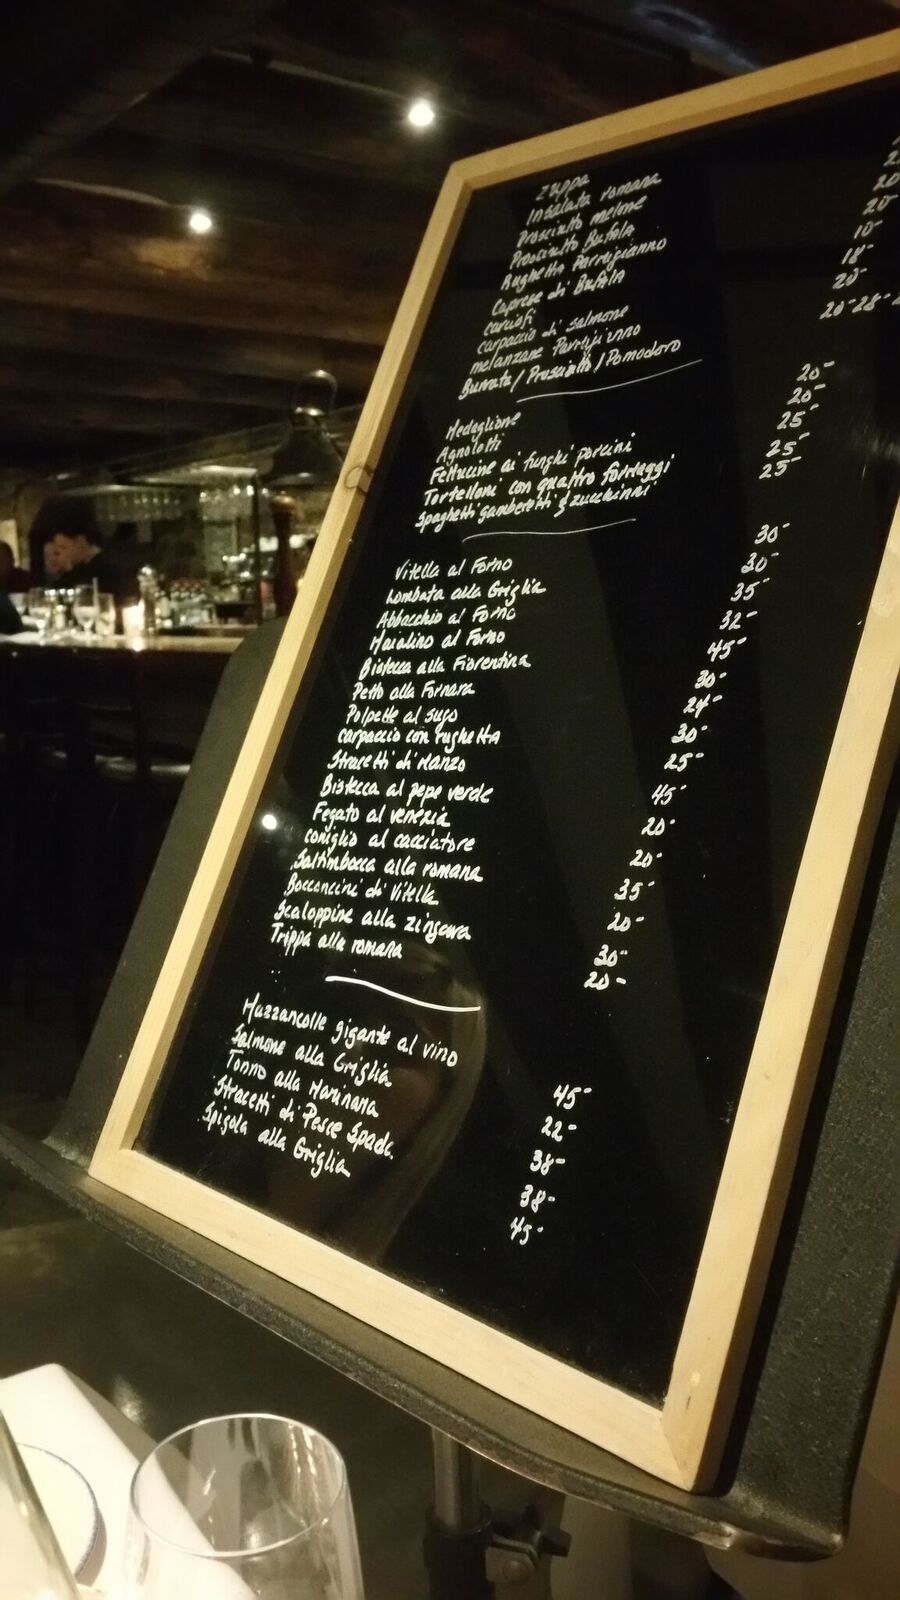 Zuppa
Insalata romana
Prosciutto melone
Prosciutto Bufala 20-
Rughetta Parmigianno 20-
Caprese di Bufala 10-
Carciofi 18-
Carpaccio di salmone 20-
melanzane Parmigianno
Burrata / Prosciutto / Pomodoro 20-28-
Medaglione 20-
Agnolotti 20-
Fettucine ai funghi porcini 25-
Tortelloni con quattro formaggi 25-
Spaghetti gamberetti & zucchinni 25-
Vitella al Forno 30-
Lombata alla Griglia 30-
Abbacchio al Forno 35-
Maialino al Forno 32-
Bistecca alla Fiorentina 45-
Petto alla Fornara 30-
Polpette al sugo 24-
Carpaccio con rughetta 30-
Stracetti di Manzo 25-
Bistecca al pepe verde 45-
Fegato al venezia 20-
Coniglio al cacciatore 20-
Saltimbocca alla romana 35-
Bocconcini di Vitella 20-
Scaloppine alla zingara 30-
Trippa alla romana 20-
Mazzancolle gigante al vino 45-
Salmone alla Griglia 22-
Tonno alla Marinara 38-
Stracetti di Pesce Spada 38-
Spigola alla Griglia 45-